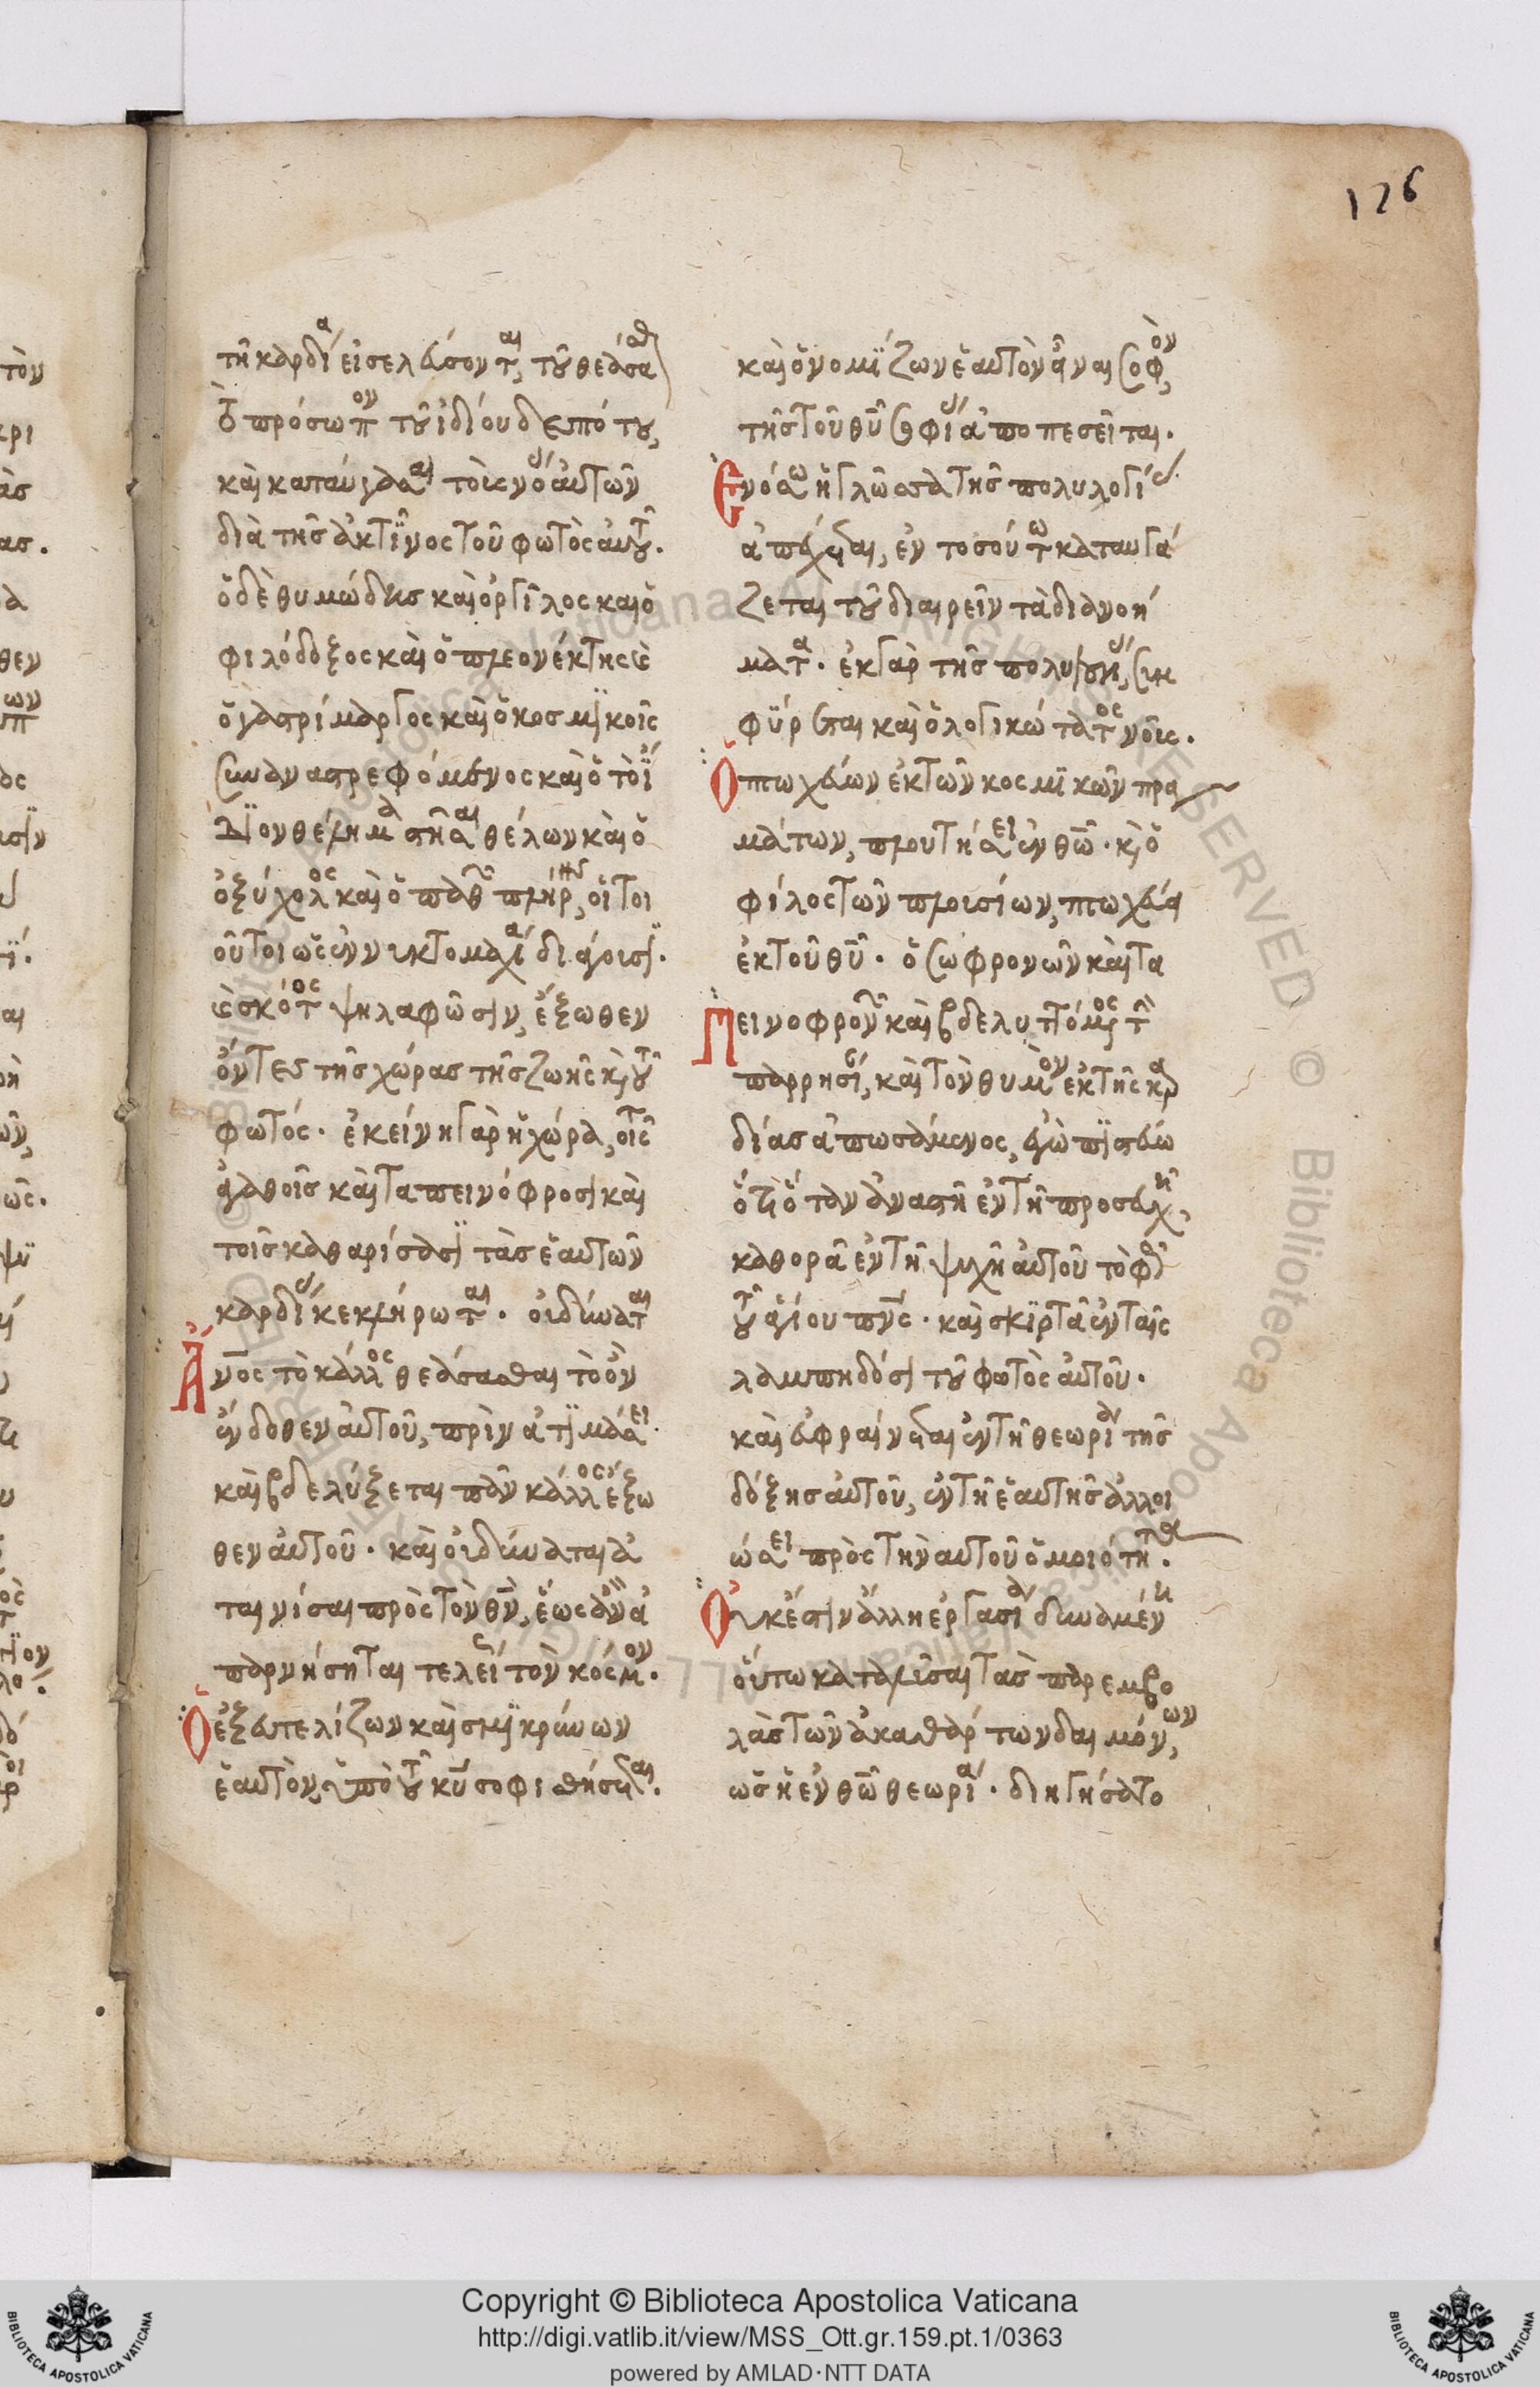 126
τῆ καρδία εἰσελεύσονται, τοῦ θεάσασθαι
τὸ πρόσωπον τοῦ ἰδίου δεσπότου,
διὰ τῆς ἀκτῖνος τοῦ φωτὸς αὐτοῦ.
ὁ δὲ θυμώδης καὶ ὀργίλος καὶ ὁ
φιλόδοξος καὶ ὁ πλεονέκτης καὶ
ὁ γαστρίμαργος καὶ ὁ κοσμϊκοῖς
συναναστρεφόμενος καὶ ὁ τὸ ἴ
διον θέλημα στῆσαι θέλων καὶ ὁ
ὀξύχολος καὶ ὁ παθῶν πλήρης, οἵτοι
οὗτοι ὡς ἐν νυκτομαχία διάγουσϊ.
καὶ σκότος ψηλαφῶσιν, ἔξωθεν
ὄντες τῆς χώρας τῆς ζωῆς καὶ τοῦ
φωτός. ἐκείνη γὰρ ἡ χώρα, τοῖς
ἀγαθοῖς καὶ ταπεινόφροσι καὶ
τοῖς καθαρίσασϊ τὰς ἑαυτῶν
καρδίας κεκλήρωται. οὐ δύναται
ἄνος τὸ κάλλος θεάσασθαι τὸ ὂν
ἔνδοθεν αὐτοῦ, πρὶν ἀτϊμάσει
καὶ βδελύξεται πᾶν κάλλος ἔξω
θεν αὐτοῦ. καὶ οὐ δύναται ἀ
τενίσαι πρὸς τὸν θν, ἕως ἂν ἀ
παρνήσηται τελείως τὸν κόσμον.
Ὁ ἐξευτελίζων καὶ σμϊκρύνων
ἑαυτὸν, ὑπὸ τοῦ κυ σοφισθήσεται.
καὶ ὁ νομϊζων ἑαυτὸν εἶναι σοφὸν,
τῆς τοῦ θυ σοφίας ἀποπεσεῖται.
Ἐν ὅσω ἡ γλῶσσα τῆς πολυλογίας
ἀπέχεται, ἐν τοσούτω καταυγά
ζεται τοῦ διαιρεῖν τὰ διανοή
ματα. ἐκ γὰρ τῆς πολυλογίας, συμ
φύρεται καὶ ὁ λογικώτατος νοῦς.
Ὁ πτωχεύων ἐκ τῶν κοσμϊκῶν πραγ
μάτων, πλουτήσει ἐν θω. καὶ ὁ
φίλος τῶν πλουσίων, πτωχεύει
ἐκ τοῦ θυ. ὁ σωφρονῶν καὶ τα
πεινοφρονῶν καὶ βδελυττόμενος τὴν
παρρησίαν, καὶ τὸν θυμὸν ἐκ τῆς καρ
δίας ἀπωσάμενος, ἐγὼ πϊστεύω
ὅτι ὅταν ἀναστῆ ἐν τῆ προσευχῆ,
καθορᾶ ἐν τῆ ψυχῆ αὐτοῦ τὸ φῶς
τοῦ ἁγίου πνς. καὶ σκϊρτᾶ ἐν ταῖς
λαμπηδόσι τοῦ φωτὸς αὐτοῦ.
καὶ εὐφραίνεται ἐν τῆ θεωρία τῆς
δόξης αὐτοῦ, ἐν τῆ ἑαυτῆς ἀλλοι
ώσει πρὸς τὴν αὐτοῦ ὁμοιότητα.
Οὐκ ἔστιν ἄλλη ἐργασία δυναμένη
οὕτω καταλῦσαι τὰς παρεμβο
λὰς τῶν ἀκαθάρτων δαιμόνων,
ὡς ἡ ἐν θω θεωρία. διηγήσατο
Copyright © Biblioteca Apostolica Vaticana
http://digi.vatlib.it/view/MSS_Ott.gr.159.pt.1/0363
powered by AMLAD·NTT DATA